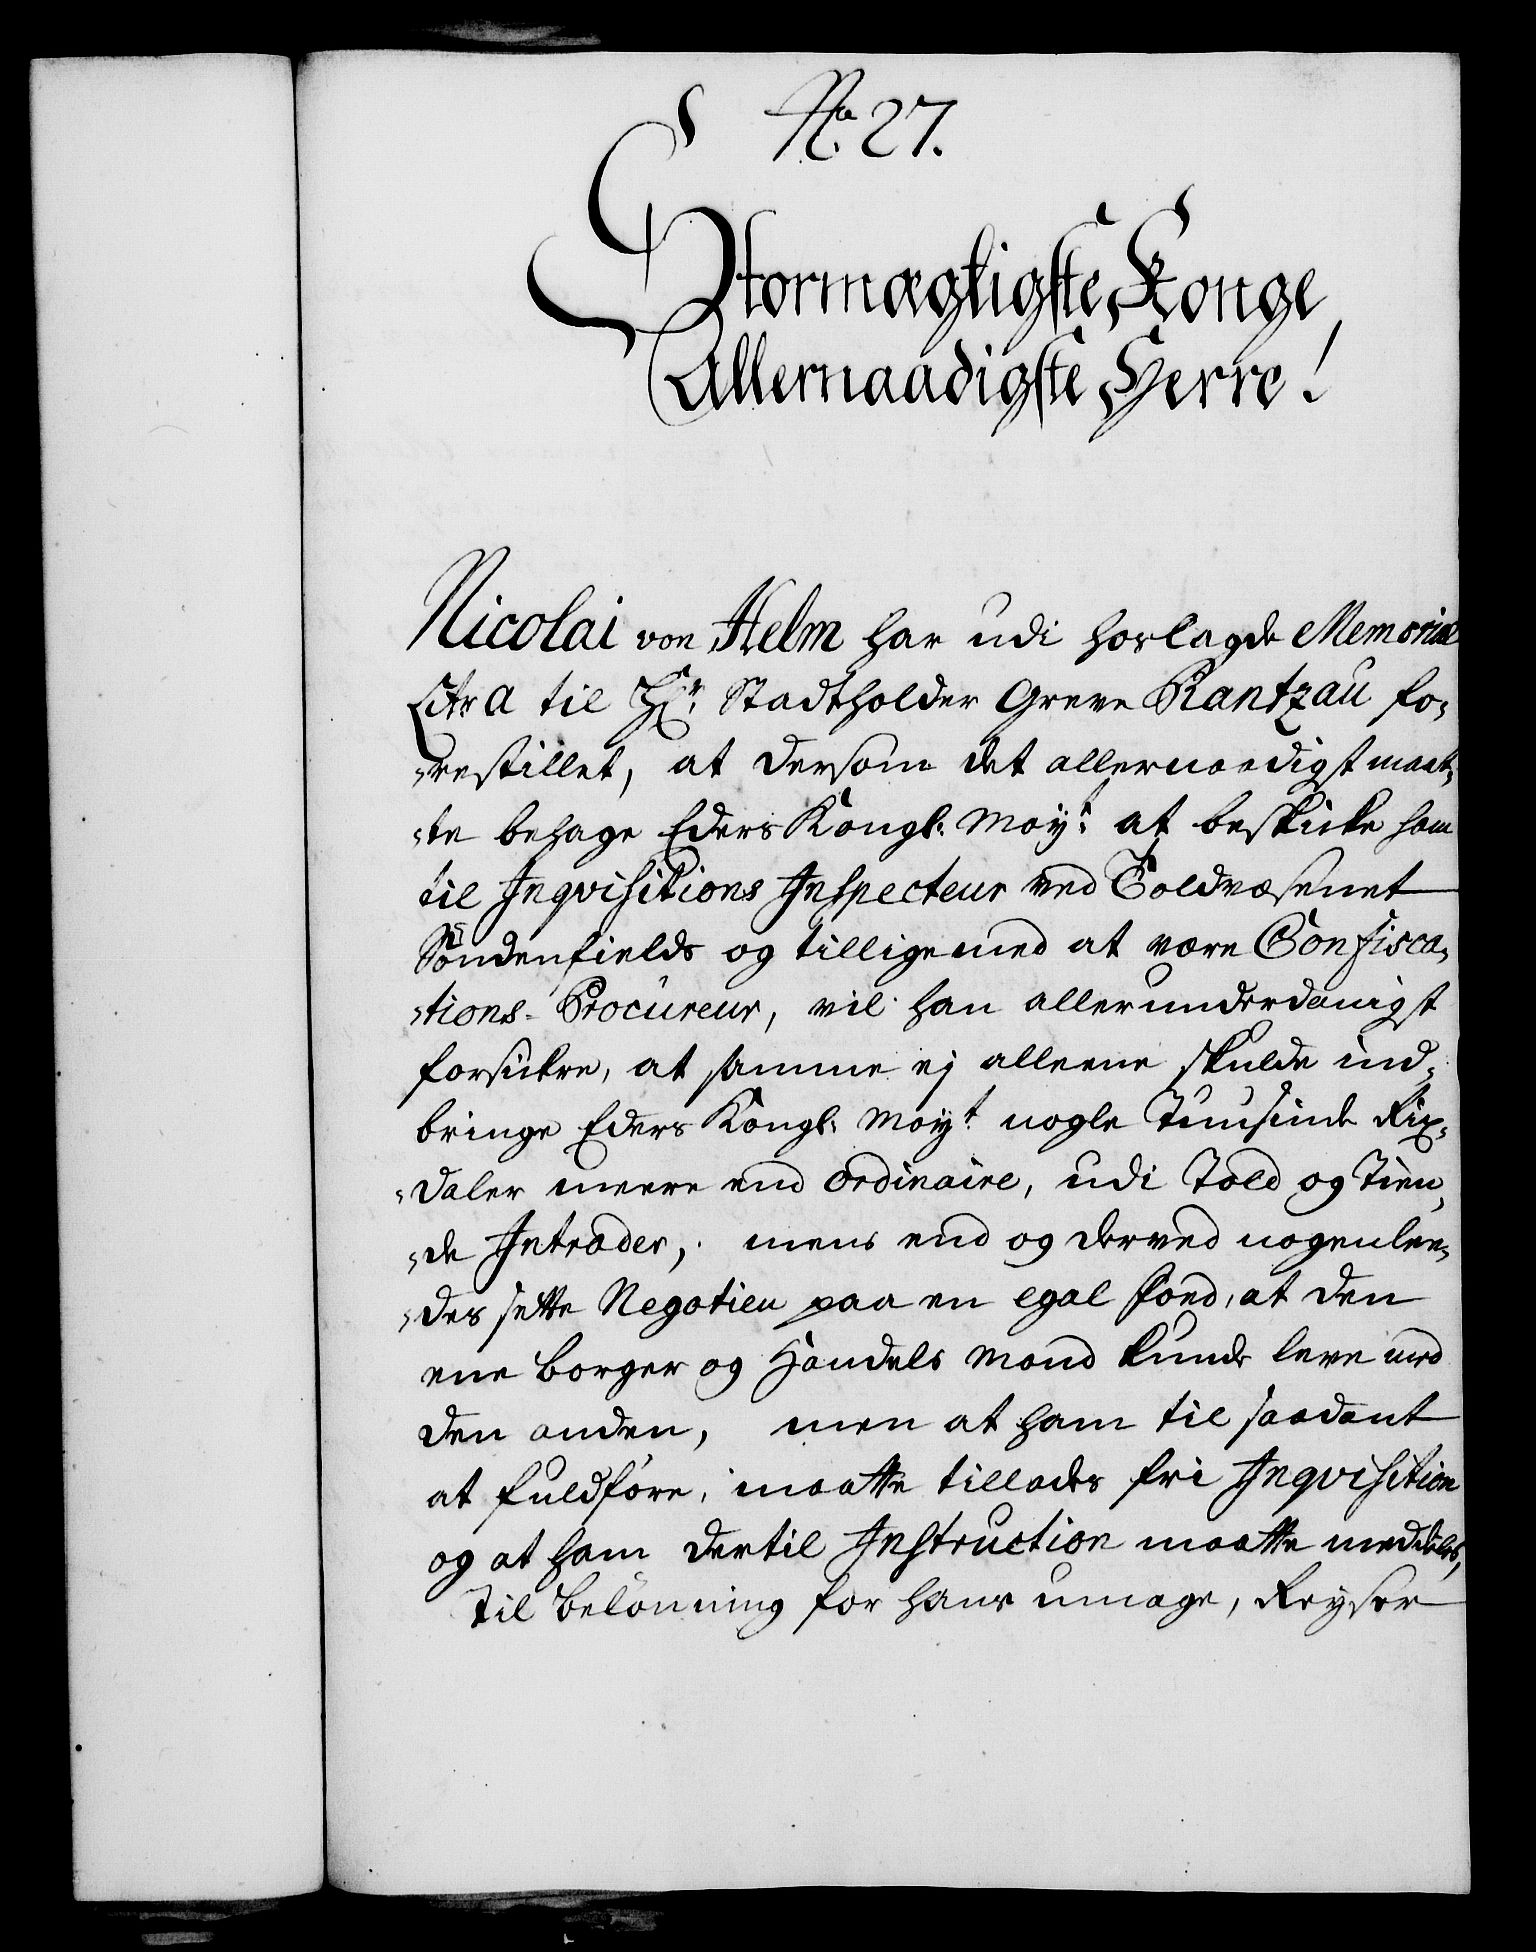 No. 27.
Stormægtigste Konge
Allernaadigste Herre!
Nicolai von Helm har udi hoslagde Memorial
Litr a til Hr. Stadtholder Greve Rantzau fo-
-restillet, at dersom det allernaadigst maat-
-te behage Eders Kongl: May:t at beskicke ham
til Inqvisitions Inspecteur ved Toldvæsenet
Søndenfields og tilligemed at være Confisca-
-tions-Procureur, vil han allerunderdanigst
forsickre, at samme ej alleene skulde ind-
bringe Eders Kongl: May:t nogle Tuusinde Rix-
-daler meere end ordinaire, udi Told og Tien-
-de Intrader, mens end og derved nogenlee-
-des sette Negotien paa en egal Foed, at den
ene borger og Handels Mand kunde leve med
den anden, men at ham til saadant
at fuldføre, maatte tillades fri Inqvisition
og at ham dertil Instruction maatte meddeles,
Til belønning for hans umage, Reyser